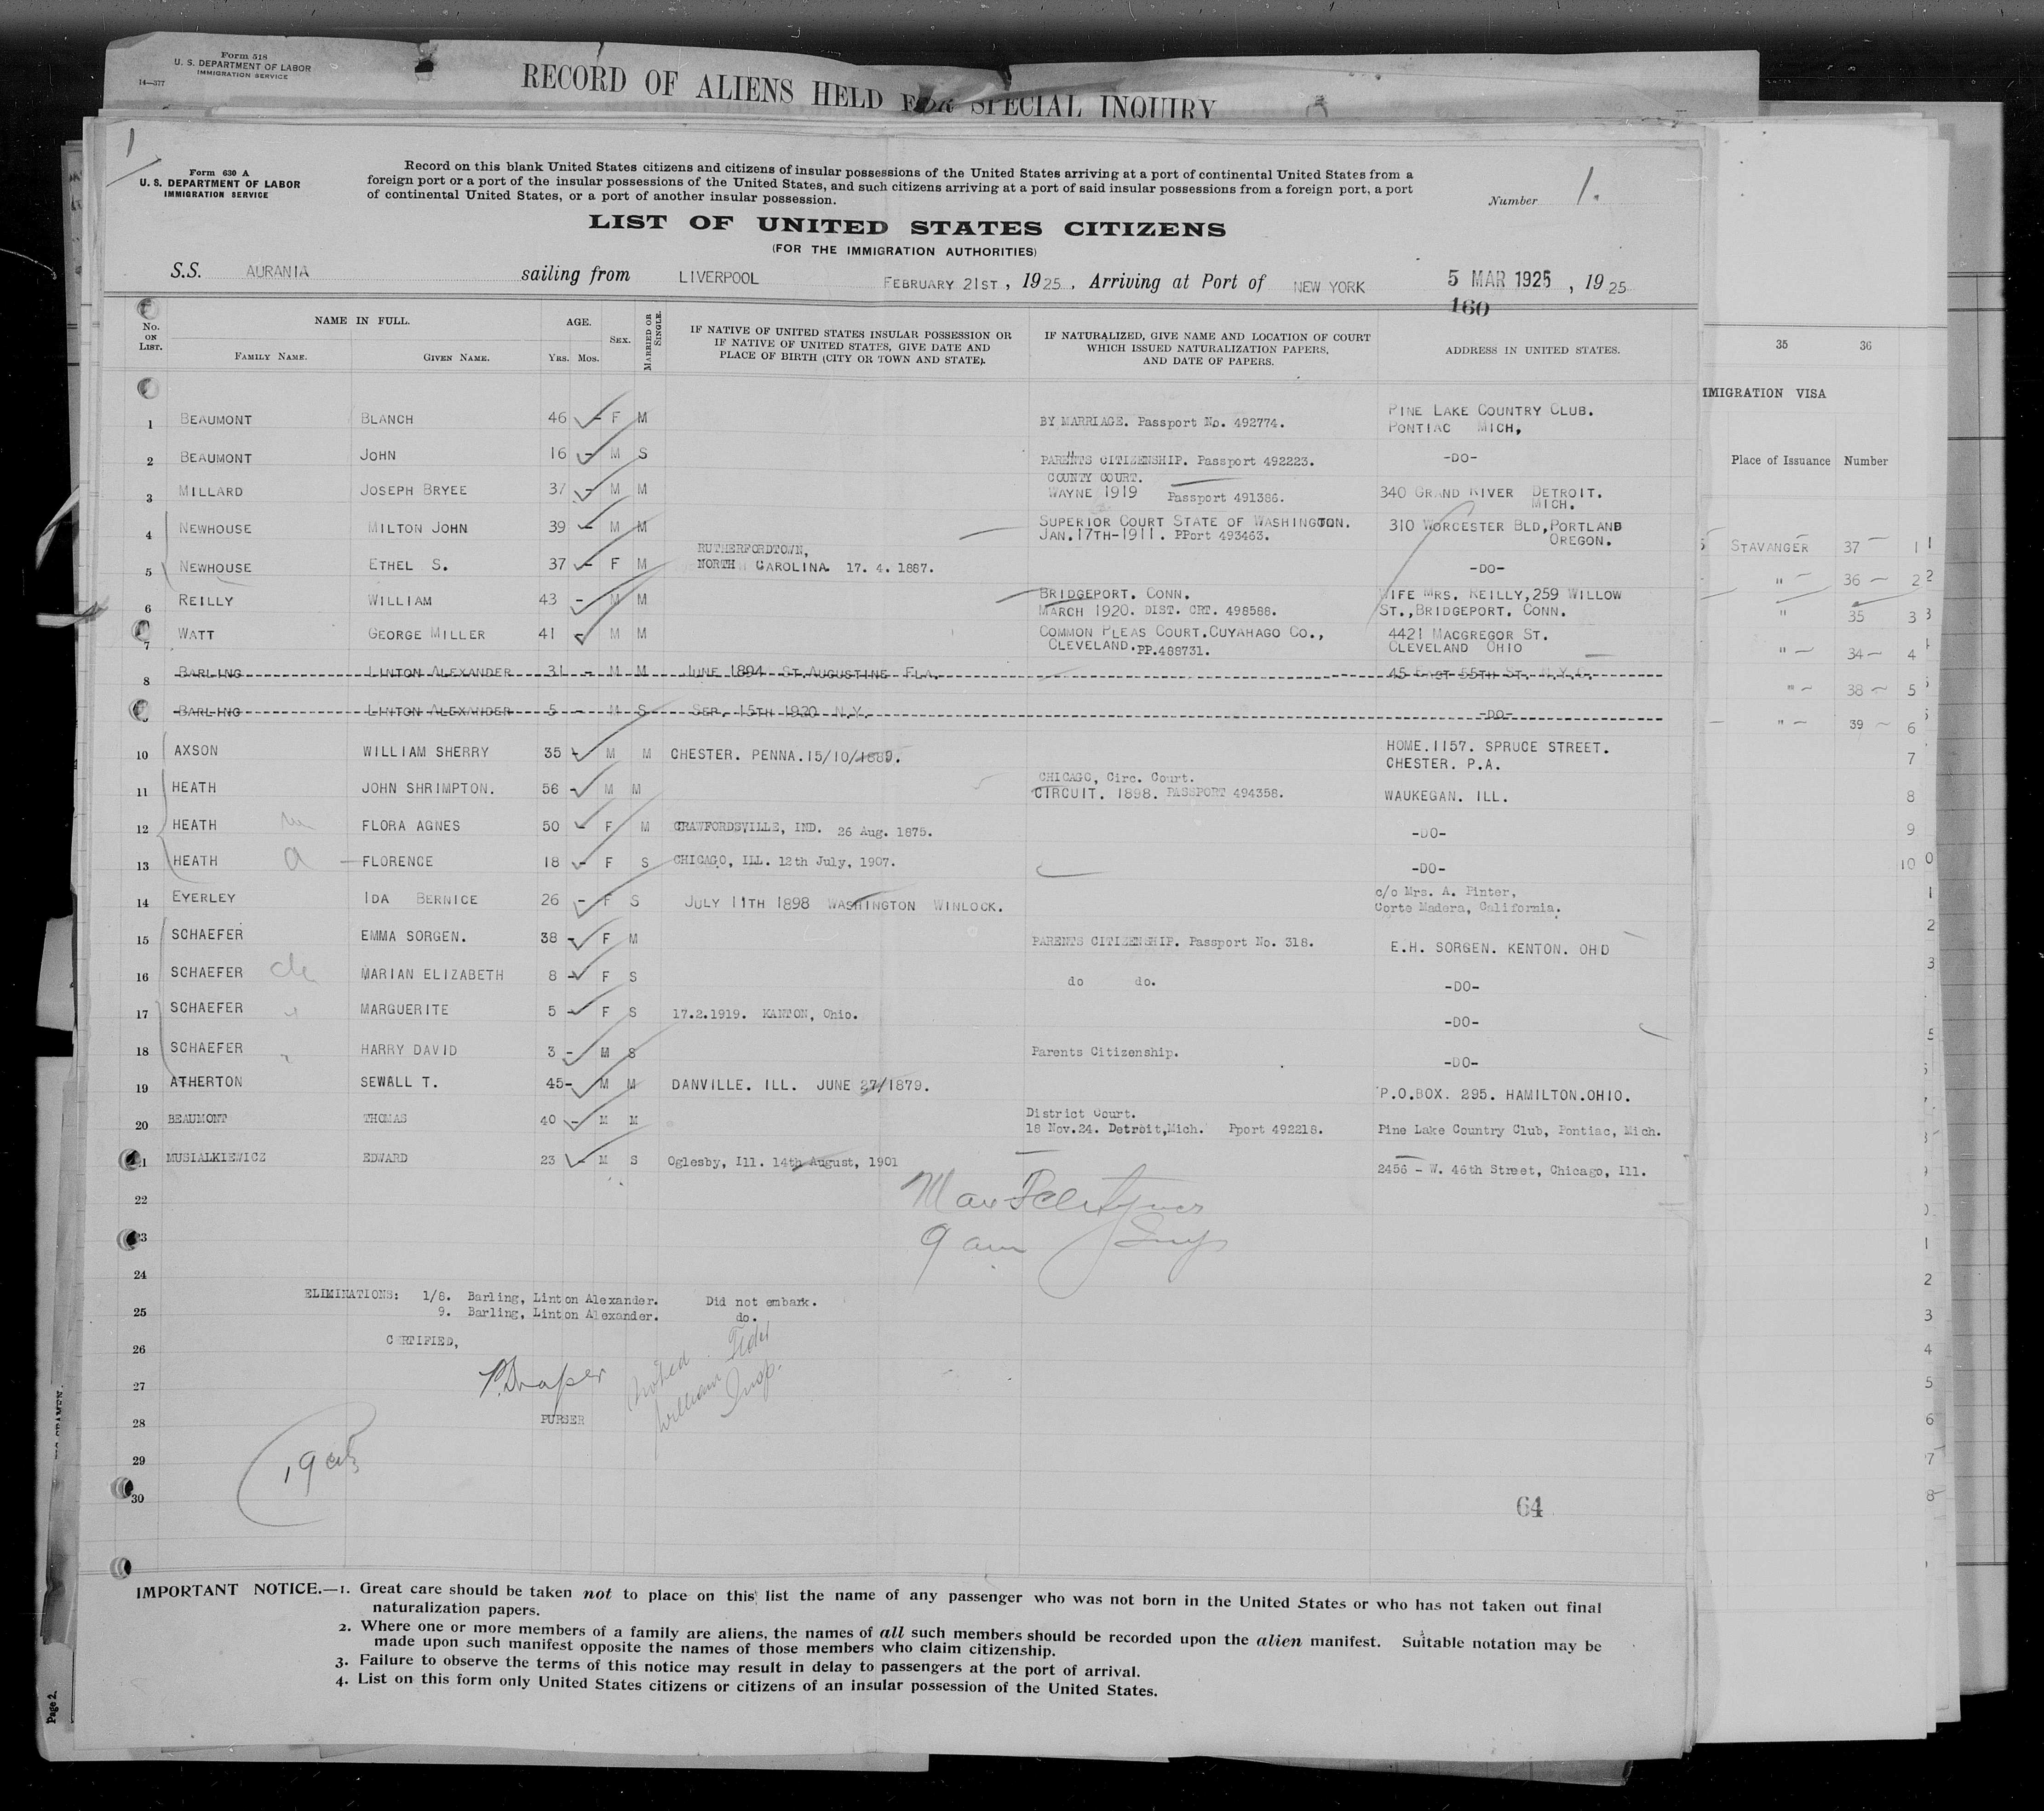 Form 518
U. S. DEPARTMENT OF LABOR
IMMIGRATION SERVICE
14—377
RECORD OF ALIENS HELD FOR SPECIAL INQUIRY
1
Form 630 A
U. S. DEPARTMENT OF LABOR
IMMIGRATION SERVICE
Record on this blank United States citizens and citizens of insular possessions of the United States arriving at a port of continental United States from a
foreign port or a port of the insular possessions of the United States, and such citizens arriving at a port of said insular possessions from a foreign port, a port
of continental United States, or a port of another insular possession.
Number 1.
LIST OF UNITED STATES CITIZENS
(FOR THE IMMIGRATION AUTHORITIES)
S.S. AURANIA sailing from LIVERPOOL FEBRUARY 21ST, 1925, Arriving at Port of NEW YORK 5 MAR 1925, 1925
160
No. ON LIST. NAME IN FULL. FAMILY NAME. GIVEN NAME. AGE. YRS. MOS. SEX. MARRIED OR SINGLE. IF NATIVE OF UNITED STATES INSULAR POSSESSION OR IF NATIVE OF UNITED STATES, GIVE DATE AND PLACE OF BIRTH (CITY OR TOWN AND STATE). IF NATURALIZED, GIVE NAME AND LOCATION OF COURT WHICH ISSUED NATURALIZATION PAPERS, AND DATE OF PAPERS. ADDRESS IN UNITED STATES.
1 BEAUMONT BLANCH 46 - F M BY MARRIAGE. Passport No. 492774. PINE LAKE COUNTRY CLUB. PONTIAC MICH,
2 BEAUMONT JOHN 16 - M S PARENTS CITIZENSHIP. Passport 492223. -DO-
3 MILLARD JOSEPH BRYEE 37 - M M COUNTY COURT. WAYNE 1919 Passport 491386. 340 GRAND RIVER DETROIT. MICH.
4 NEWHOUSE MILTON JOHN 39 - M M SUPERIOR COURT STATE OF WASHINGTON. JAN.17TH-1911. PPort 493463. 310 WORCESTER BLD, PORTLAND OREGON.
5 NEWHOUSE ETHEL S. 37 - F M RUTHERFORDTOWN, NORTH CAROLINA. 17. 4. 1887. -DO-
6 REILLY WILLIAM 43 - M M BRIDGEPORT. CONN. MARCH 1920. DIST. CRT. 498588. WIFE MRS. REILLY, 259 WILLOW ST., BRIDGEPORT. CONN.
7 WATT GEORGE MILLER 41 - M M COMMON PLEAS COURT.CUYAHAGO CO., CLEVELAND.PP.488731. 4421 MACGREGOR ST. CLEVELAND OHIO
8 BARLING LINTON ALEXANDER 31 - M M JUNE 1894 ST.AUGUSTINE FLA. 45 EAST 55TH ST. N.Y.C.
BARLING LINTON ALEXANDER 5 - M S SEP. 15TH 1920 N.Y. -DO-
10 AXSON WILLIAM SHERRY 35 - M M CHESTER. PENNA.15/10/1889. HOME.1157. SPRUCE STREET. CHESTER. P.A.
11 HEATH JOHN SHRIMPTON. 56 - M M CHICAGO, Circ. Court. CIRCUIT. 1898. PASSPORT 494358. WAUKEGAN. ILL.
12 HEATH FLORA AGNES 50 - F M CRAWFORDSVILLE, IND. 26 Aug. 1875. -DO-
13 HEATH FLORENCE 18 - F S CHICAGO, ILL. 12th July, 1907. -DO-
14 EYERLEY IDA BERNICE 26 - F S JULY 11TH 1898 WASHINGTON WINLOCK. c/o Mrs. A. Pinter, Corte Madera, California.
15 SCHAEFER EMMA SORGEN. 38 - F M PARENTS CITIZENSHIP. Passport No. 318. E.H. SORGEN. KENTON. OHD
16 SCHAEFER MARIAN ELIZABETH 8 - F S do do. -DO-
17 SCHAEFER MARGUERITE 5 - F S 17.2.1919. KANTON, Ohio. -DO-
18 SCHAEFER HARRY DAVID 3 - M S Parents Citizenship. -DO-
19 ATHERTON SEWALL T. 45- M M DANVILLE. ILL. JUNE 27/1879. P.O.BOX. 295. HAMILTON.OHIO.
20 BEAUMONT THOMAS 40 - M M District Court. 18 Nov.24. Detroit,Mich. Pport 492218. Pine Lake Country Club, Pontiac, Mich.
21 MUSIALKIEWICZ EDWARD 23 - M S Oglesby, Ill. 14th August, 1901 2456 - W. 46th Street, Chicago, Ill.
22
23
9 am
24
ELIMINATIONS: 1/8. Barling, Linton Alexander. Did not embark.
25 9. Barling, Linton Alexander. do.
26 CERTIFIED,
27 P. Draper
Noted
William Insp.
28 PURSER
29
30
64
IMPORTANT NOTICE.—1. Great care should be taken not to place on this list the name of any passenger who was not born in the United States or who has not taken out final
naturalization papers.
2. Where one or more members of a family are aliens, the names of all such members should be recorded upon the alien manifest. Suitable notation may be
made upon such manifest opposite the names of those members who claim citizenship.
3. Failure to observe the terms of this notice may result in delay to passengers at the port of arrival.
4. List on this form only United States citizens or citizens of an insular possession of the United States.
Page 2.
35 36
IMMIGRATION VISA
Place of Issuance Number
STAVANGER 37 1
" 36 2
" 35 3
" 34 4
" 38 5
" 39 6
7
8
9
10